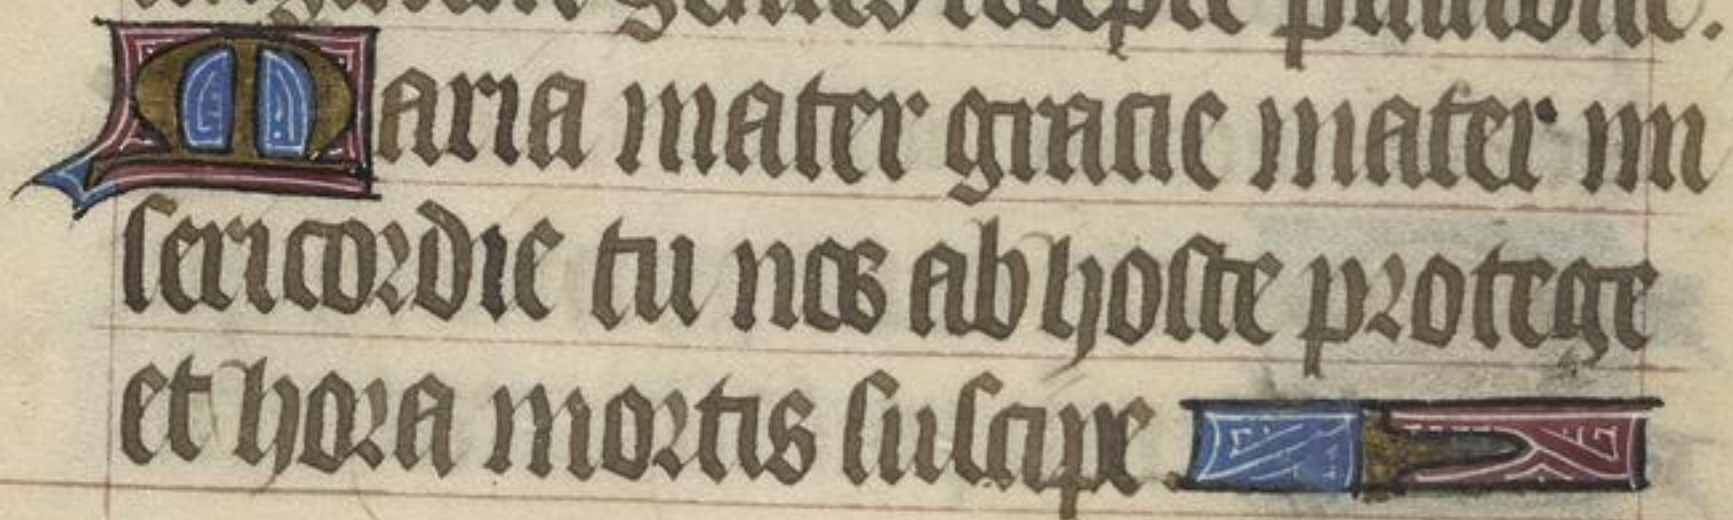 Maria mater gracie mater mi
sericordie tu nos ab hoste protege
et hora mortis suscipe.